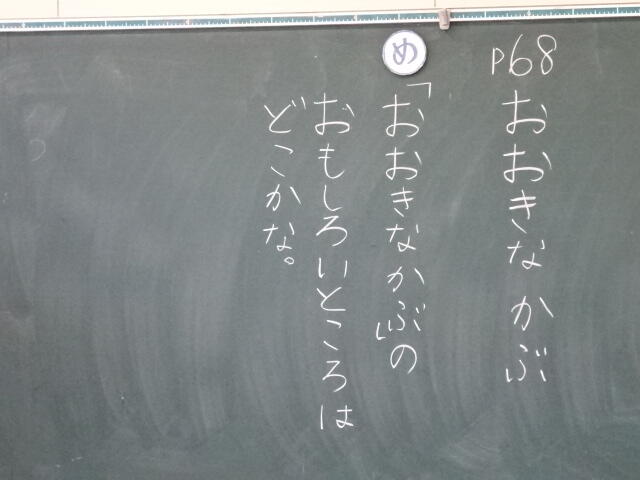 p68 おおきな かぶ
め
「おおきなかぶ」の
おもしろいところは
どこかな。